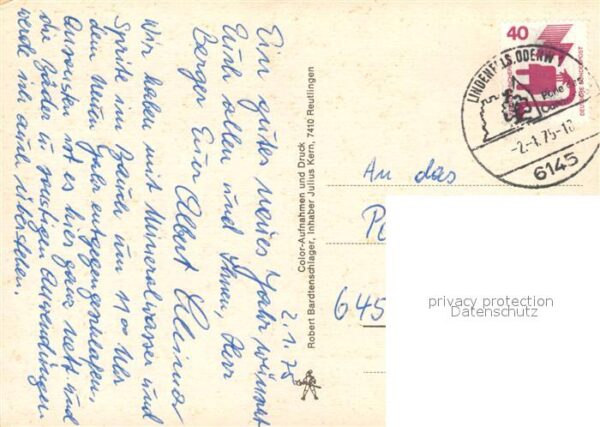 Ein gutes neues Jahr wünscht
Euch allen und Ihnen, Herr
Berger Euer Albert
Wir haben mit Mineralwasser und
Sprite im Bauch um 11 00 Uhr
dem neuen Jahr entgegengeschlafen.
Ansonsten ist es hier ganz nett und
die Bäder u. sonstigen Anwendungen
werde ich auch überstehen.
2.1.75
Color-Aufnahmen und Druck
Robert Bardtenschlager, Inhaber Julius Kern, 7410 Reutlingen
40
DEUTSCHE BUNDESPOST
LINDENFELS, ODENW
-2.-1.75-1
6145
An das
645
privacy protection
Datenschutz